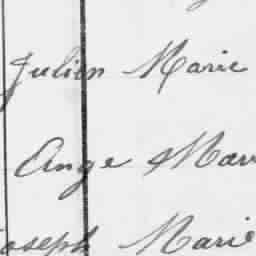 Julien Marie
Ange Mari
Joseph Marie